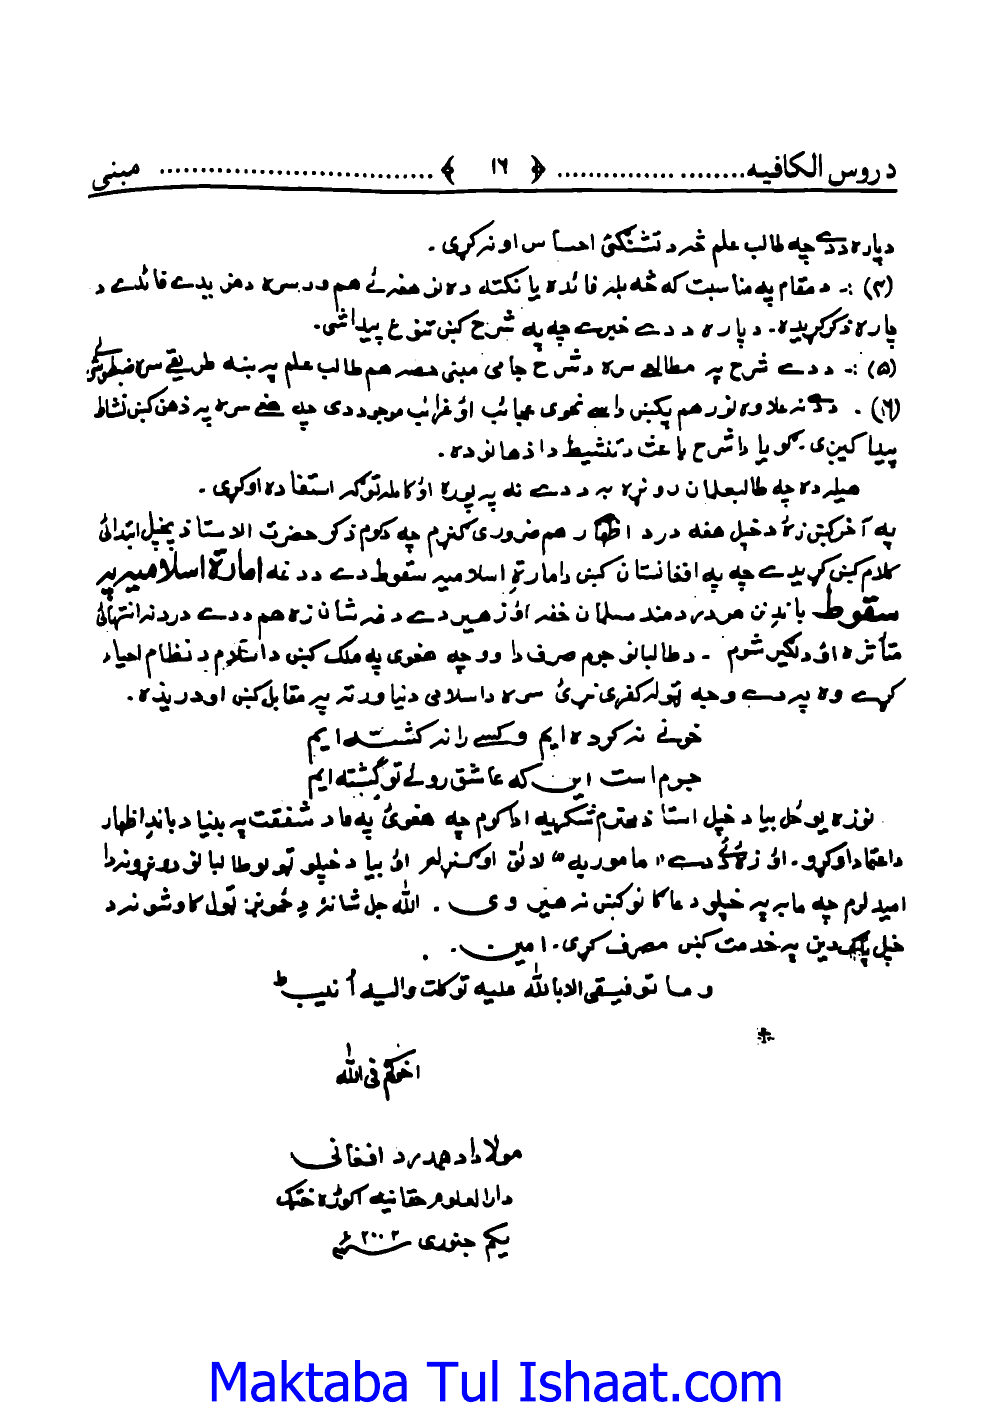 دروس الکافیه ........................ ﴿ ۱۶ ﴾ ................................ مبنی
دپاره ددے چه طالب علم څه د تشنګئ احساس اونه کړی .
(۴) :- د مقام په مناسبت که څه بله فائده یا نکته ده نو هغه ئے هم ورسره د مزیدے فائدے د
پاره ذکر کړیده. دپاره د دے خبرے چه په شرح کښ تنوع پیداشی.
(۵) :- ددے شرح په مطالعے سره د شرح جامی مبنی حصه هم طالب علم په ښه طریقے سره ضبطولے شی
(۶) . دګنه علاوه نور هم پکښ داسے نحوی عجائب اؤ غرائب موجود دی چه هغے سره په ذهن کښ نشاط
پیدا کیږی. ګویا دا شرح باعث د تنشیط د اذهانو ده .
هیله ده چه طالبعلمان روڼه به ددے نه په پوره اؤ کامله توګه استفاده اوکړی .
په آخر کښ زۀ دخپل هغه درد اظهار هم ضروری ګنړم چه کوم ذکر حضرت الاستاذ پخپل ابتدائی
کلام کښ کړیدے چه په افغانستان کښ د امارة اسلامیه سقوط دے د دغه امارة اسلامیه په
سقوط باندِ نن هر دردمند مسلمان خفه اؤ زهیر دے دغه شان زه هم ددے درد نه انتهائی
متأثره اؤ دلګیر شوم . د طالبانو جرم صرف دا وو چه هغوی په ملک کښ د اسلام د نظام احیاء
کړے وه په دے وجه ټوله کفری نړئ سره د اسلامی دنیا ورته په مقابل کښ اودریده .
خونے نه کرده ایم وکسے را نه کشته ایم
جرم است این که عاشق روئے تو گشته ایم
نو زه یو ځل بیا د خپل استاذ محترم شکریه ادا کوم چه هغوئ په ما د شفقت په بنیاد باندِ اظهار
د اعتماد اوکړو. اؤ زۀ ئے ددے "ماموریه" لائق اوګنړلم اؤ بیا د خپلو ټولو طالبانو روڼو نه دا
امید لرم چه ما به په خپلو دعاګانو کښ نه هیروی . الله جل شانهٔ دِ ځمونږ ټول کاوشونه د
خپل پاک دین په خدمت کښ مصرف کړی. امین .
وما توفیقی الا بالله علیه توکلت والیه أنیب ط
اخوکم فی الله
مولاداد همدرد افغانی
دارالعلوم حقانیه اکوړه خټک
یکم جنوری ۲۰۰۲ء
Maktaba Tul Ishaat.com